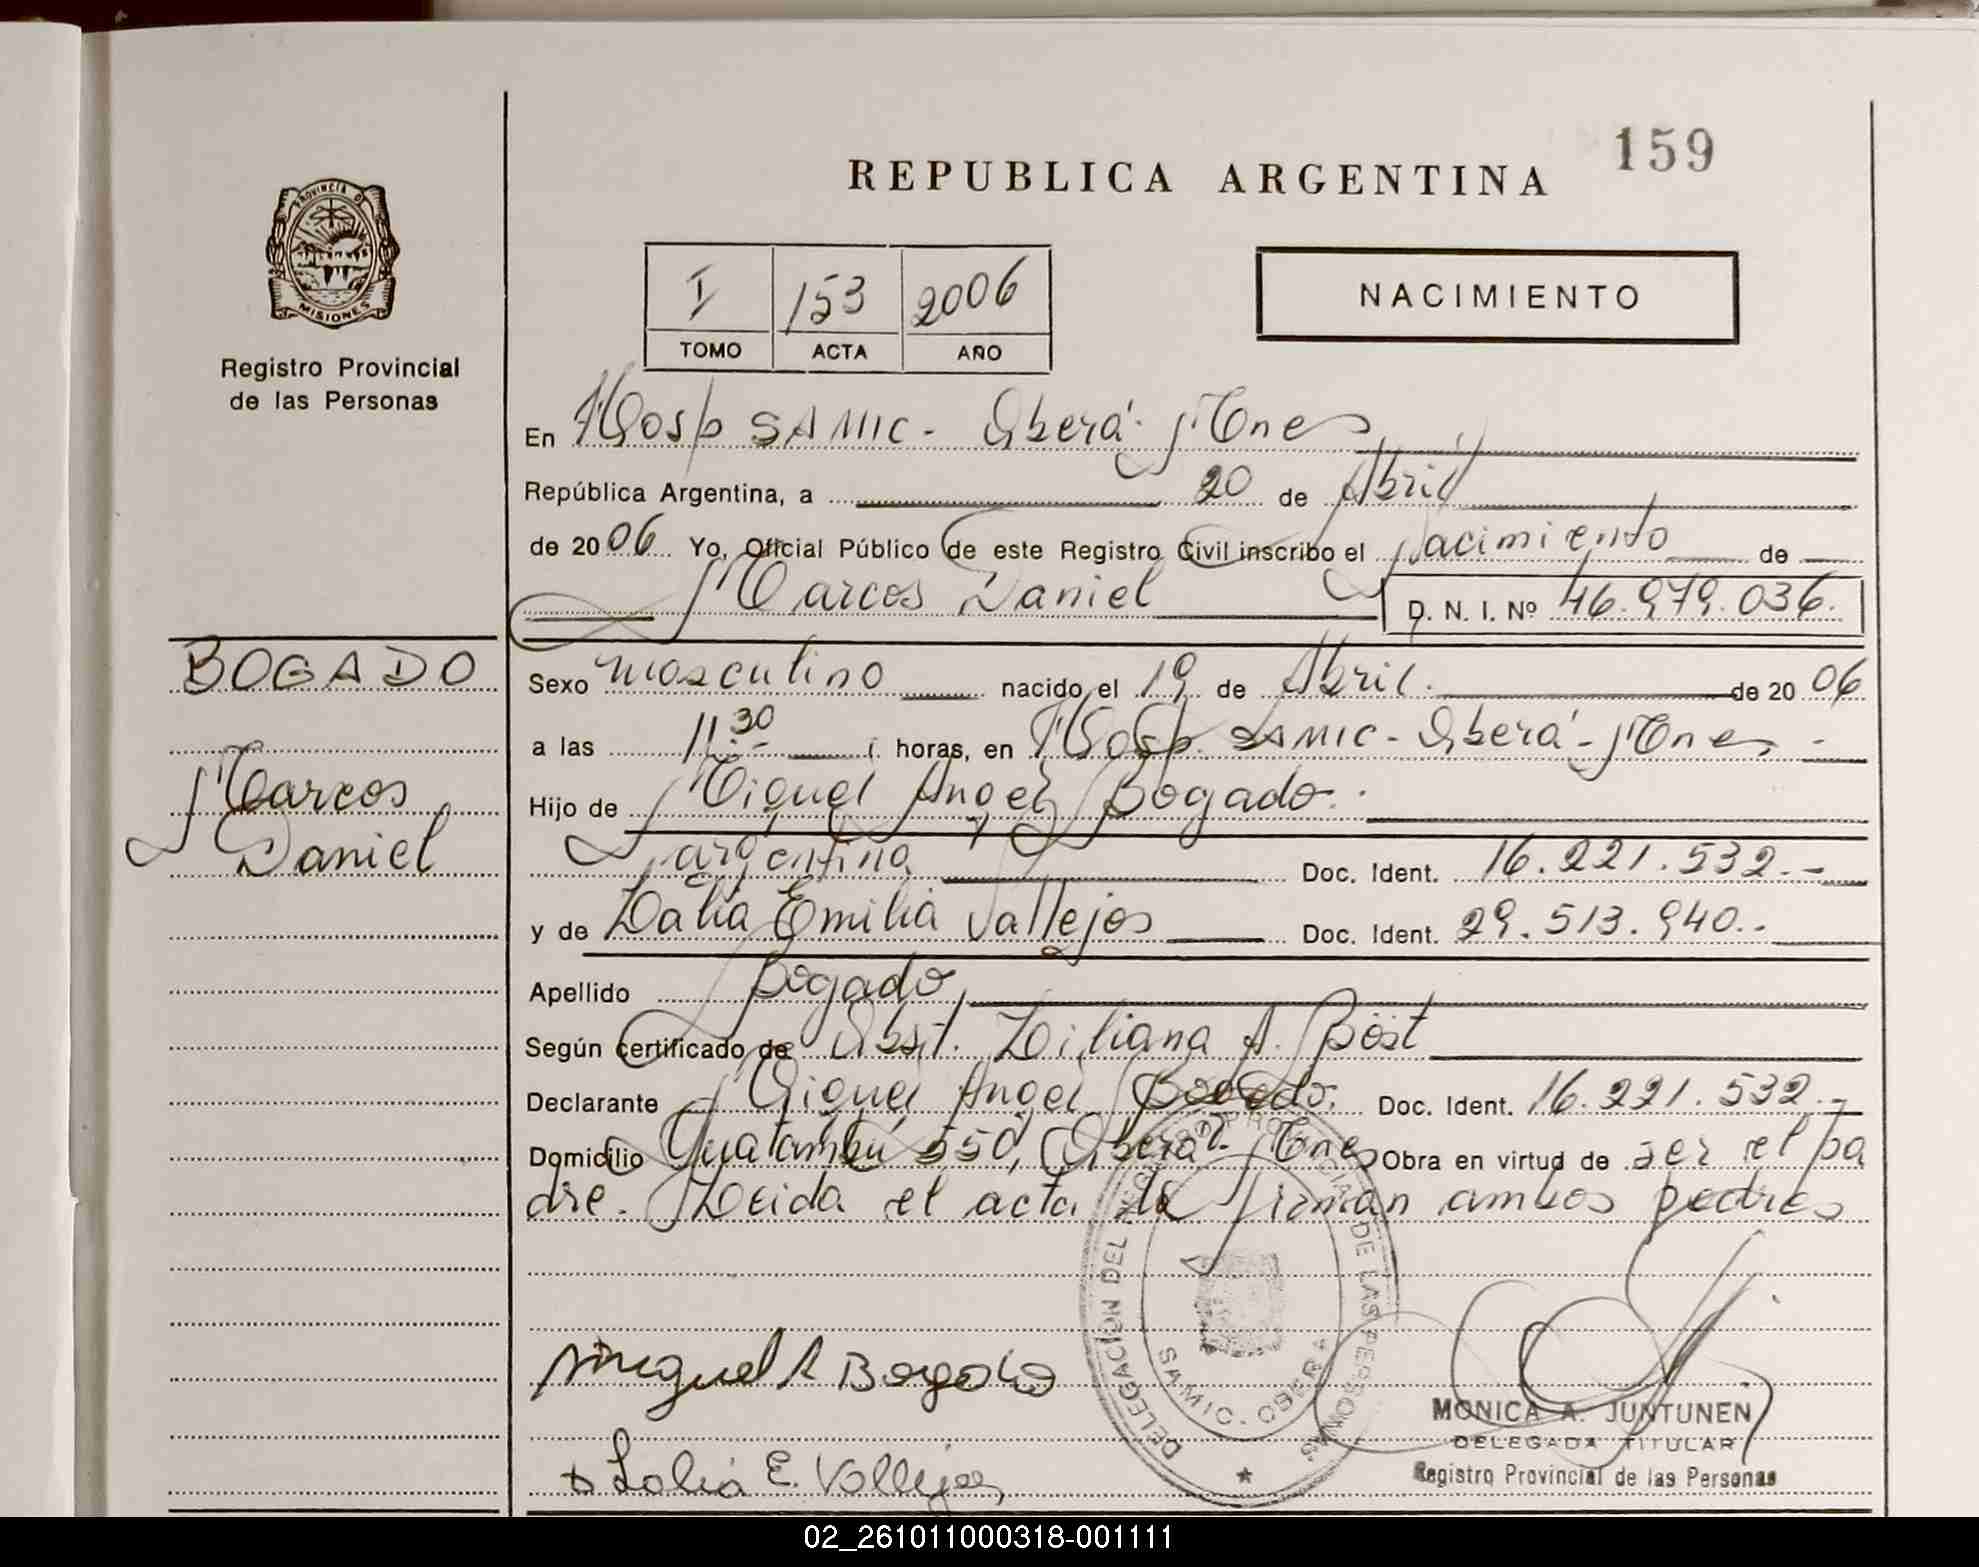 159
REPUBLICA ARGENTINA
PROVINCIA DE
MISIONES
Registro Provincial
de las Personas
I 153 2006
TOMO ACTA AÑO
NACIMIENTO
En Hosp SAMIC - Oberá - Mnes
República Argentina, a 20 de Abril
de 2006 Yo, Oficial Público de este Registro Civil inscribo el Nacimiento de
Marcos Daniel D. N. I. Nº 46.979.036.
BOGADO
Marcos
Daniel
Sexo masculino nacido el 19 de Abril. de 2006
a las 11.30 horas, en Hosp. SAMIC - Oberá - Mnes -
Hijo de Miguel Angel Bogado.
argentina Doc. Ident. 16.221.532.-
y de Lalia Emilia Vallejos Doc. Ident. 29.513.940..
Apellido Bogado
Según certificado de Obst. Liliana A. Böst
Declarante Miguel Angel Bogado. Doc. Ident. 16.221.532.-
Domicilio Guatambú 550, Oberá - Mnes Obra en virtud de ser el pa
dre. Leida el acta la firman ambos padres
Miguel A Bogado
Lalia E. Vallejos
DELEGACION DEL REGISTRO PROVINCIAL DE LAS PERSONAS
SAMIC. OBERA
MONICA A. JUNTUNEN
DELEGADA TITULAR
Registro Provincial de las Personas
02_261011000318-001111